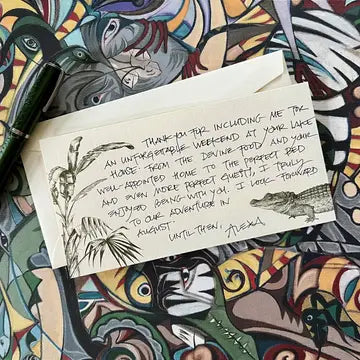 THANK YOU FOR INCLUDING ME FOR
AN UNFORGETABLE WEEKEND AT YOUR LAKE
HOUSE. FROM THE DEVINE FOOD AND YOUR
WELL-APPOINTED HOME TO THE PERFECT BED
AND EVEN MORE PERFECT GUESTS, I TRULY
ENJOYED BEING WITH YOU. I LOOK FORWARD
TO OUR ADVENTURE IN
AUGUST.
UNTIL THEN, ALEXA